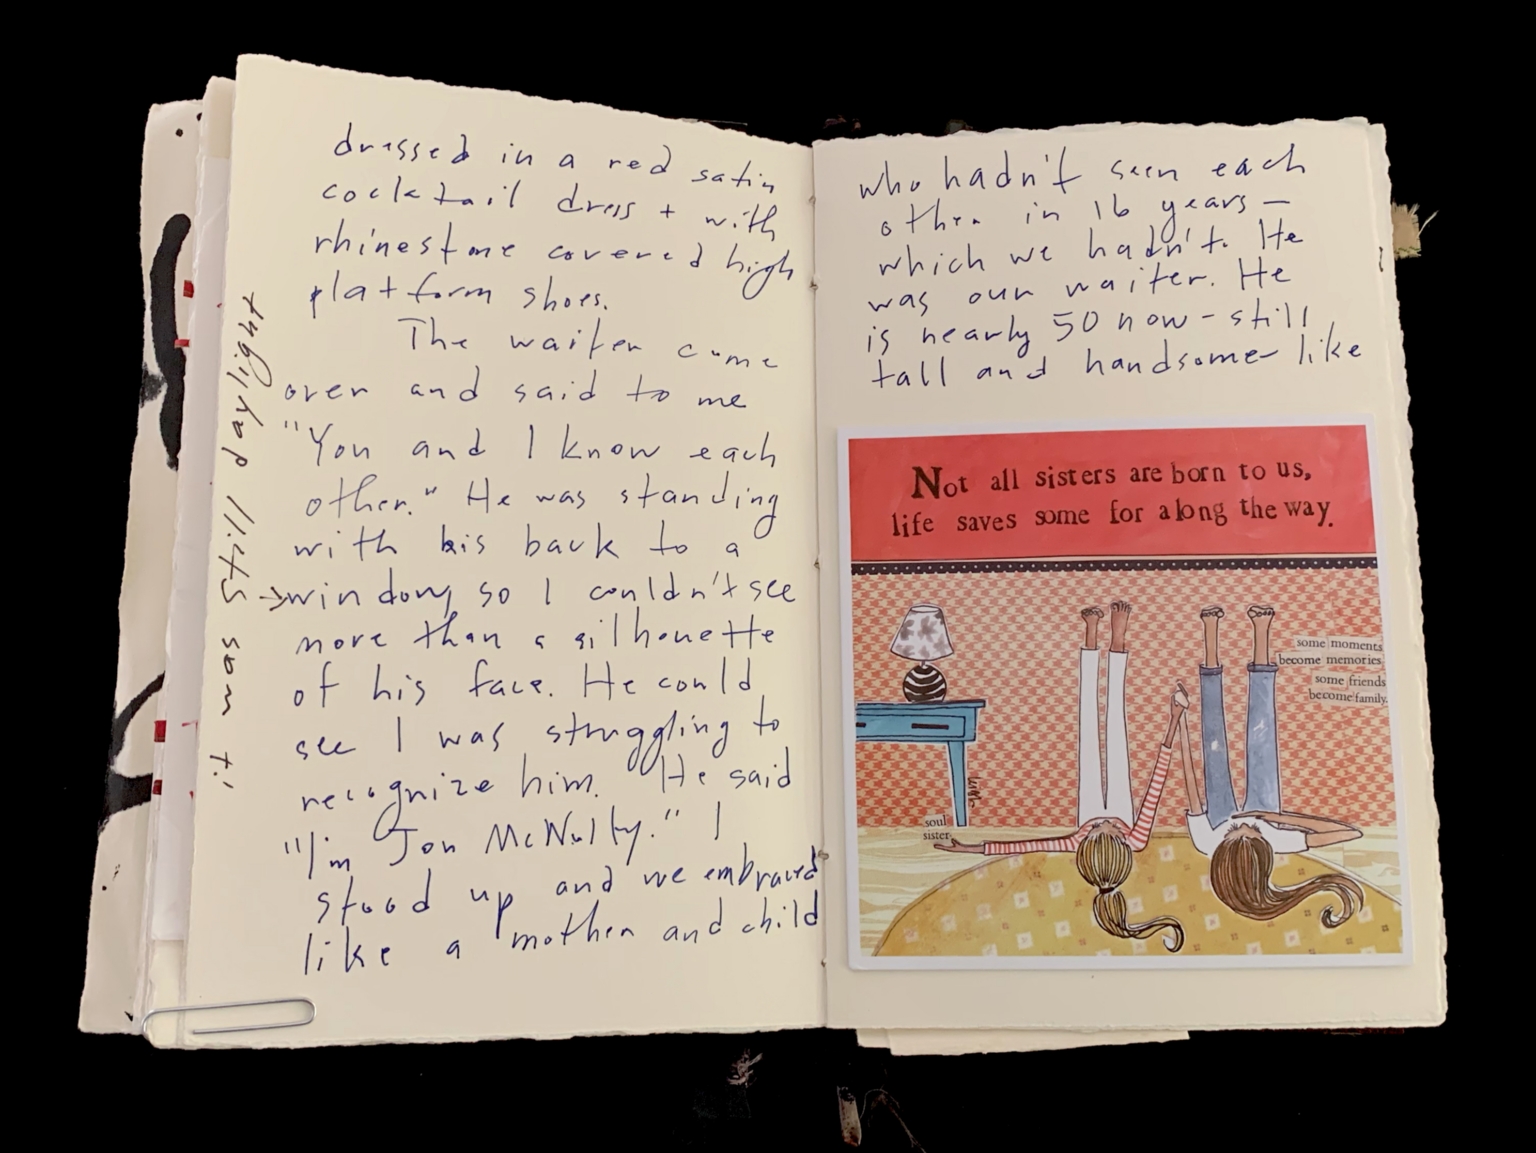 dressed in a red satin
cocktail dress + with
rhinestone covered high
platform shoes.
The waiter came
over and said to me
"You and I know each
other." He was standing
with his back to a
→window, so I couldn't see
more than a silhouette
of his face. He could
see I was struggling to
recognize him. He said
"I'm Jon McNulty." I
stood up and we embraced
like a mother and child
it was still daylight
who hadn't seen each
other in 16 years —
which we hadn't. He
was our waiter. He
is nearly 50 now - still
tall and handsome like
Not all sisters are born to us,
life saves some for along the way.
some moments
become memories
some friends
become family.
soul
sister